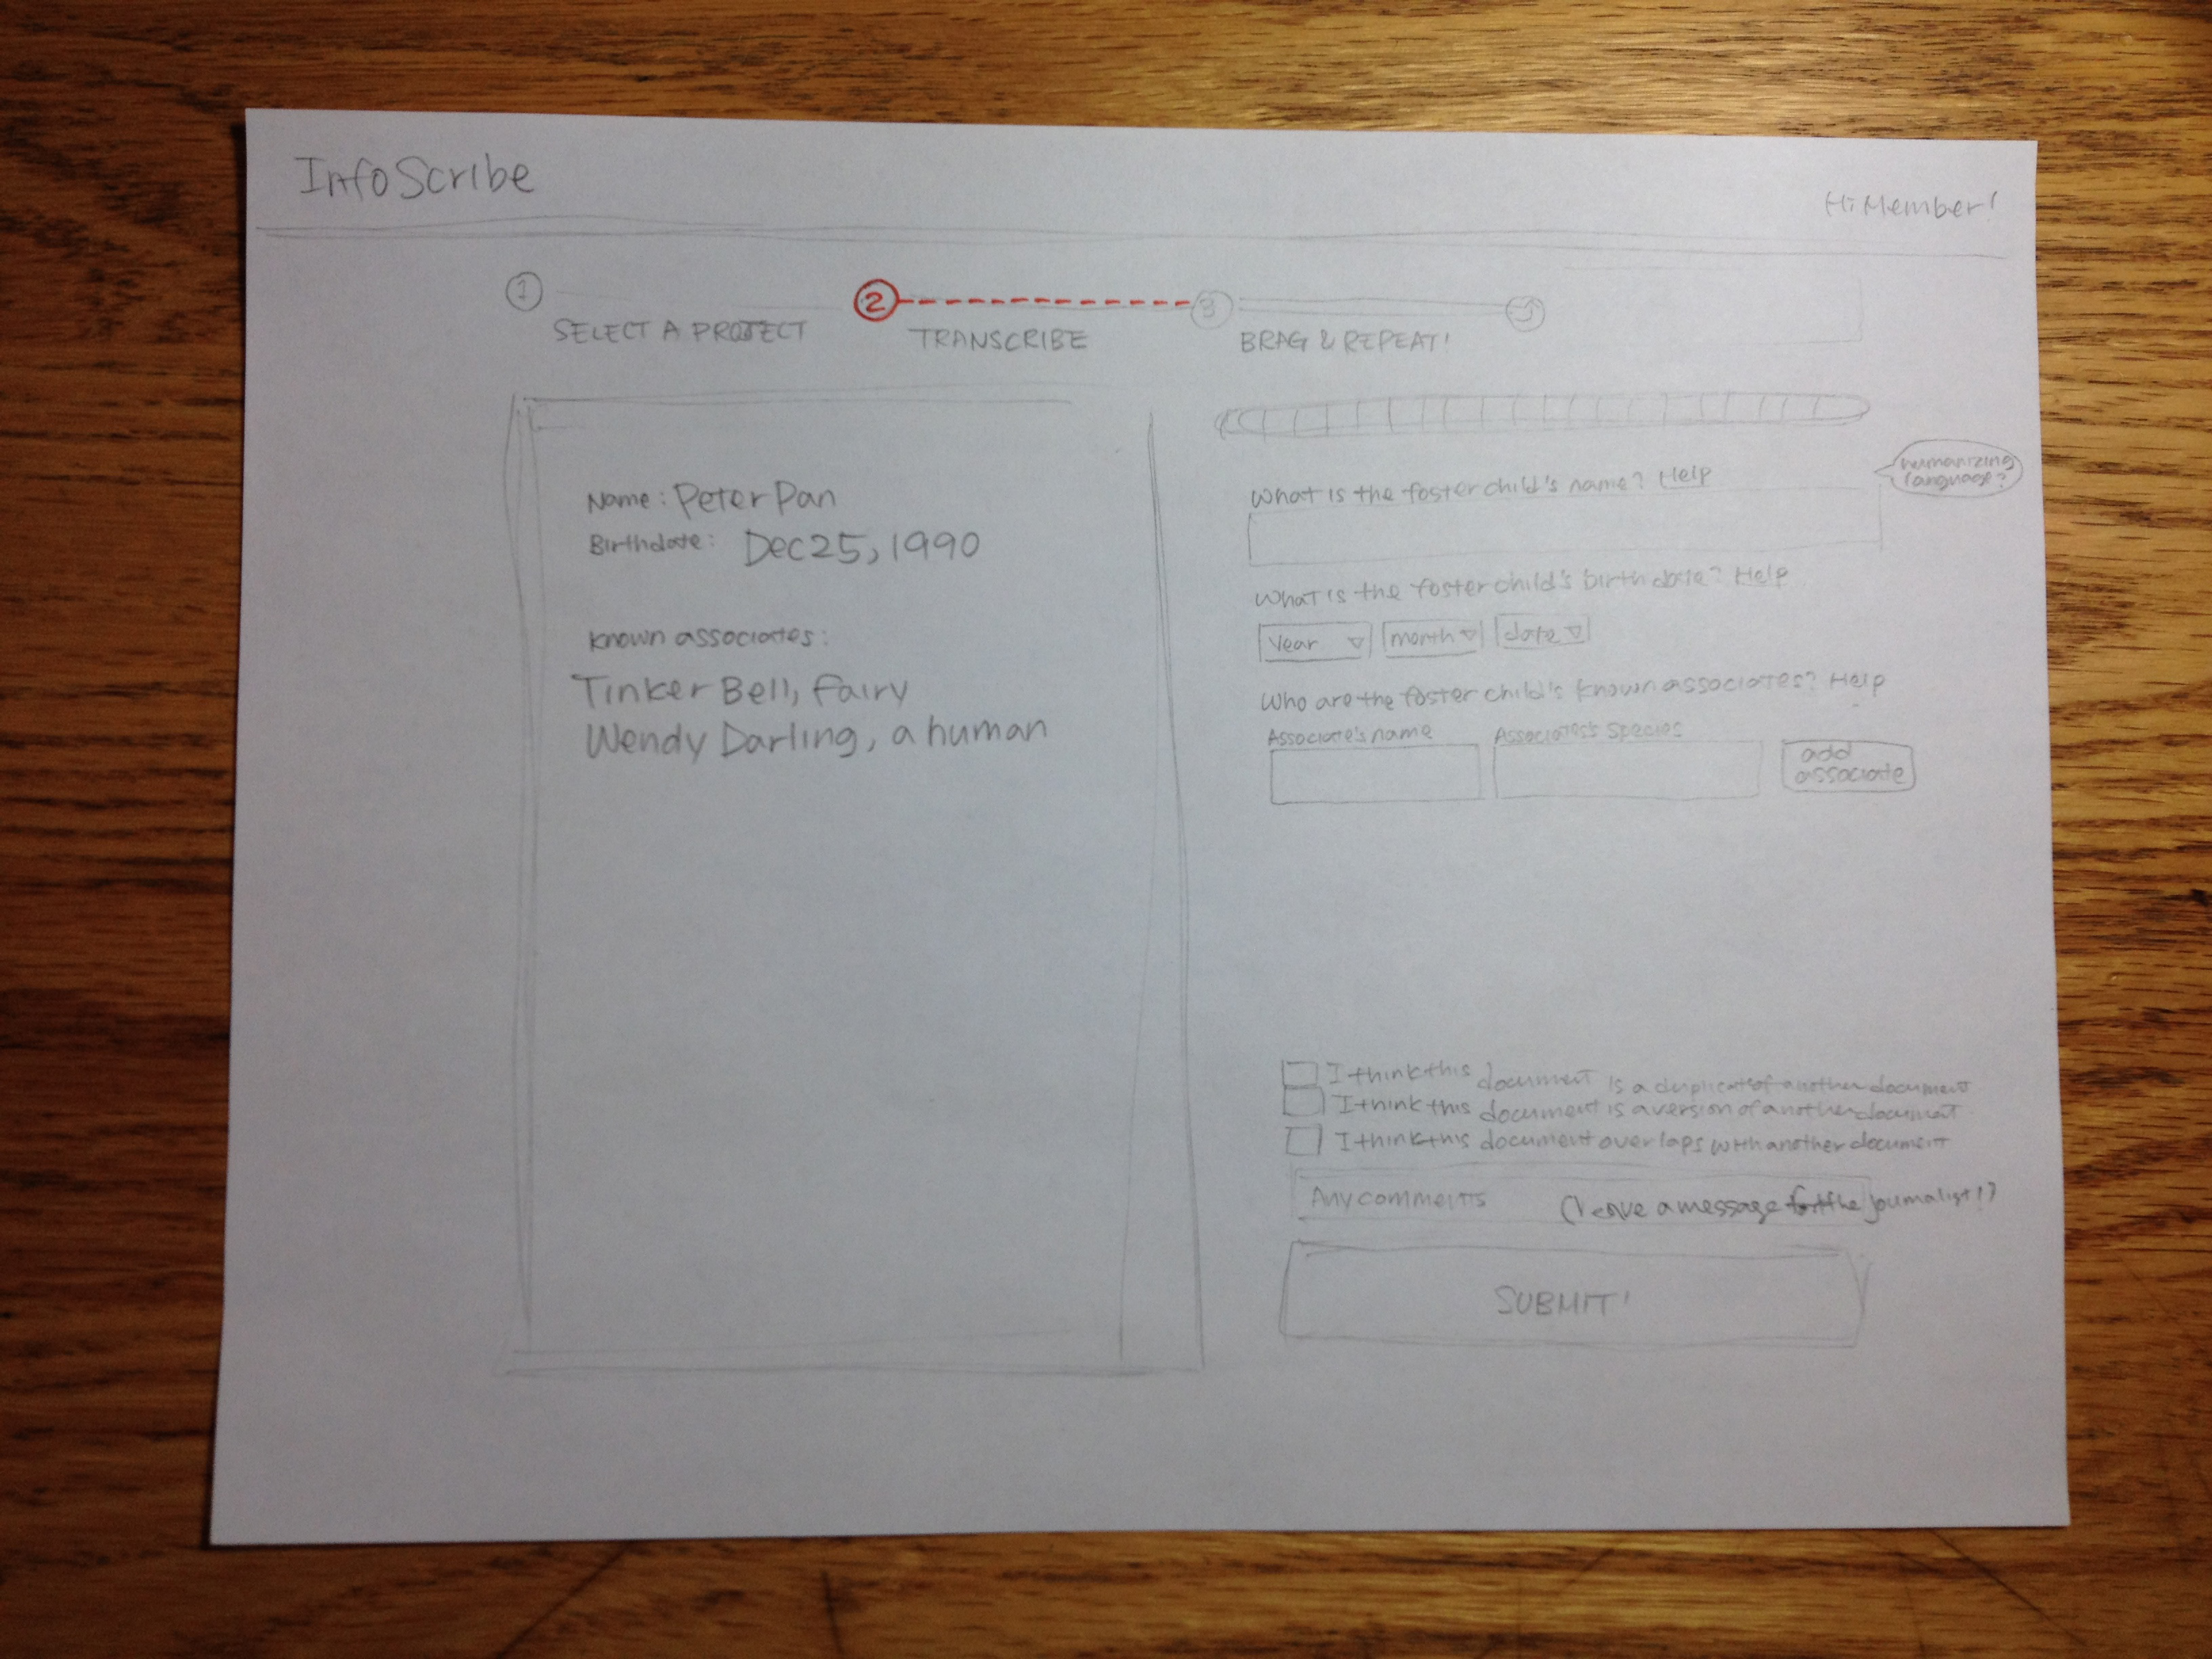 InfoScribe
Hi Member!
1
2
3
SELECT A PROJECT
TRANSCRIBE
BRAG & REPEAT!
Name: Peter Pan
Birthdate: Dec 25, 1990
Known associates:
Tinker Bell, fairy
Wendy Darling, a human
humanizing
language?
What is the foster child's name? Help
What is the foster child's birthdate? Help
Year
month
date
Who are the foster child's known associates? Help
Associate's name
Associates's species
add
associate
I think this document is a duplicate of another document
I think this document is a version of another document
I think this document overlaps with another document
Any comments
(leave a message for the journalist!)
SUBMIT!